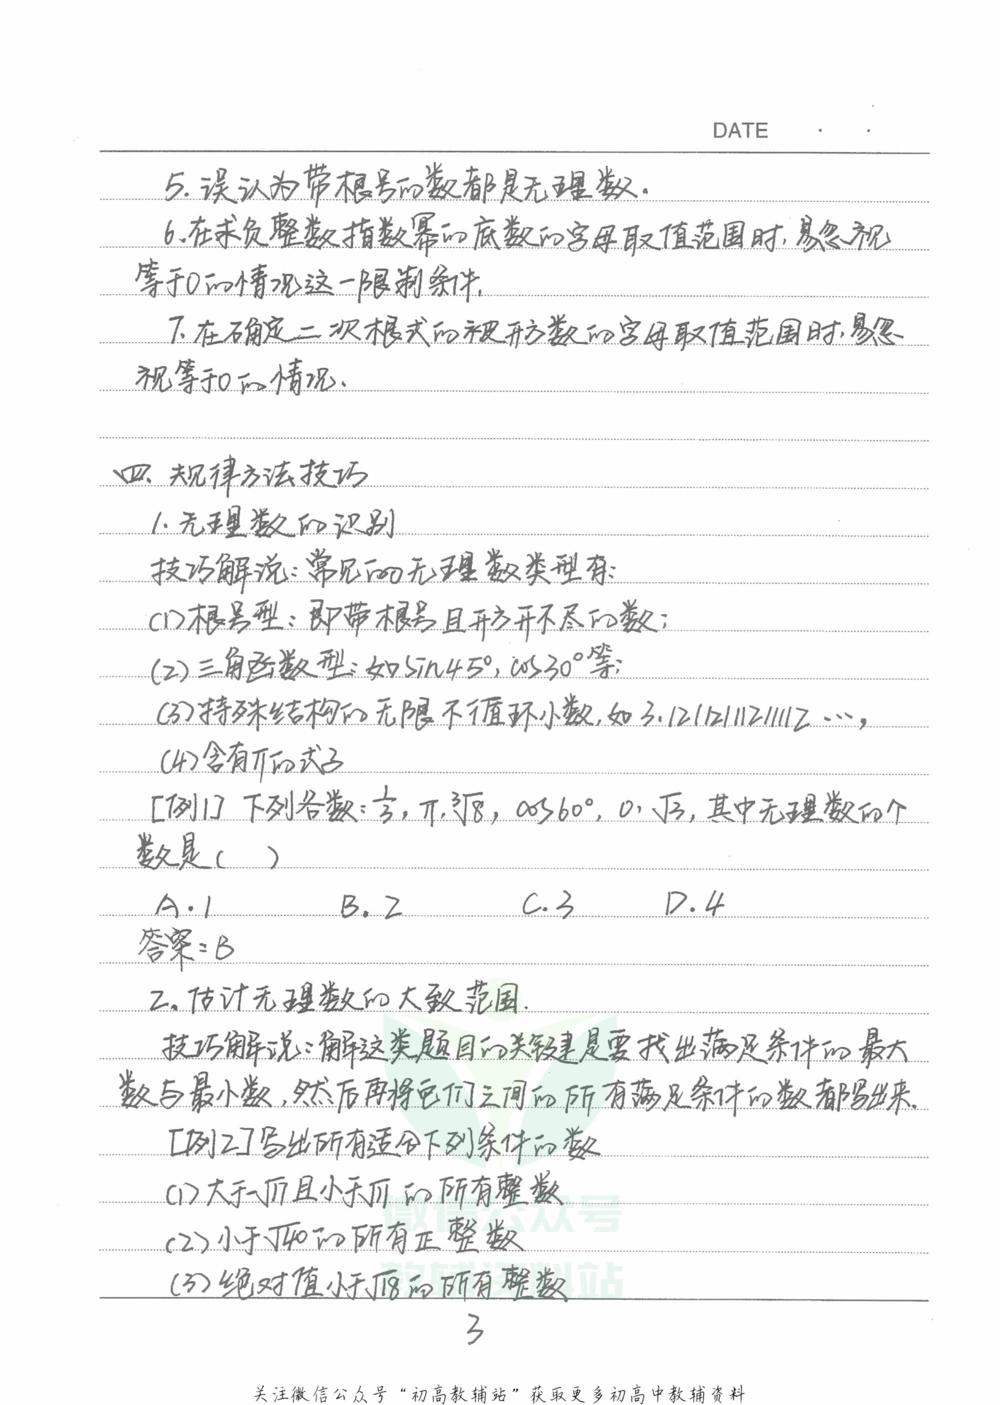 DATE · ·
5. 误认为带根号的数都是无理数.
6. 在求负整数指数幂的底数的字母取值范围时,易忽视
等于0的情况这一限制条件.
7. 在确定二次根式的被开方数的字母取值范围时,易忽
视等于0的情况.
四、规律方法技巧
1. 无理数的识别
技巧解说:常见的无理数类型有:
(1)根号型:即带根号且开方开不尽的数;
(2)三角函数型:如sin45°,cos30°等;
(3)特殊结构的无限不循环小数,如3.121121112111112…,
(4)含有π的式子
[例1] 下列各数:1/3,π,∛8,cos60°,0,√3,其中无理数的个
数是( )
A.1 B.2 C.3 D.4
答案:B
2. 估计无理数的大致范围.
技巧解说:解这类题目的关键是要找出满足条件的最大
数与最小数,然后再将它们之间的所有满足条件的数都写出来.
[例2]写出所有适合下列条件的数
(1)大于-√17且小于√11的所有整数
(2)小于√40的所有正整数
(3)绝对值小于√18的所有整数
微信公众号
教辅资料站
3
关注微信公众号“初高教辅站”获取更多初高中教辅资料